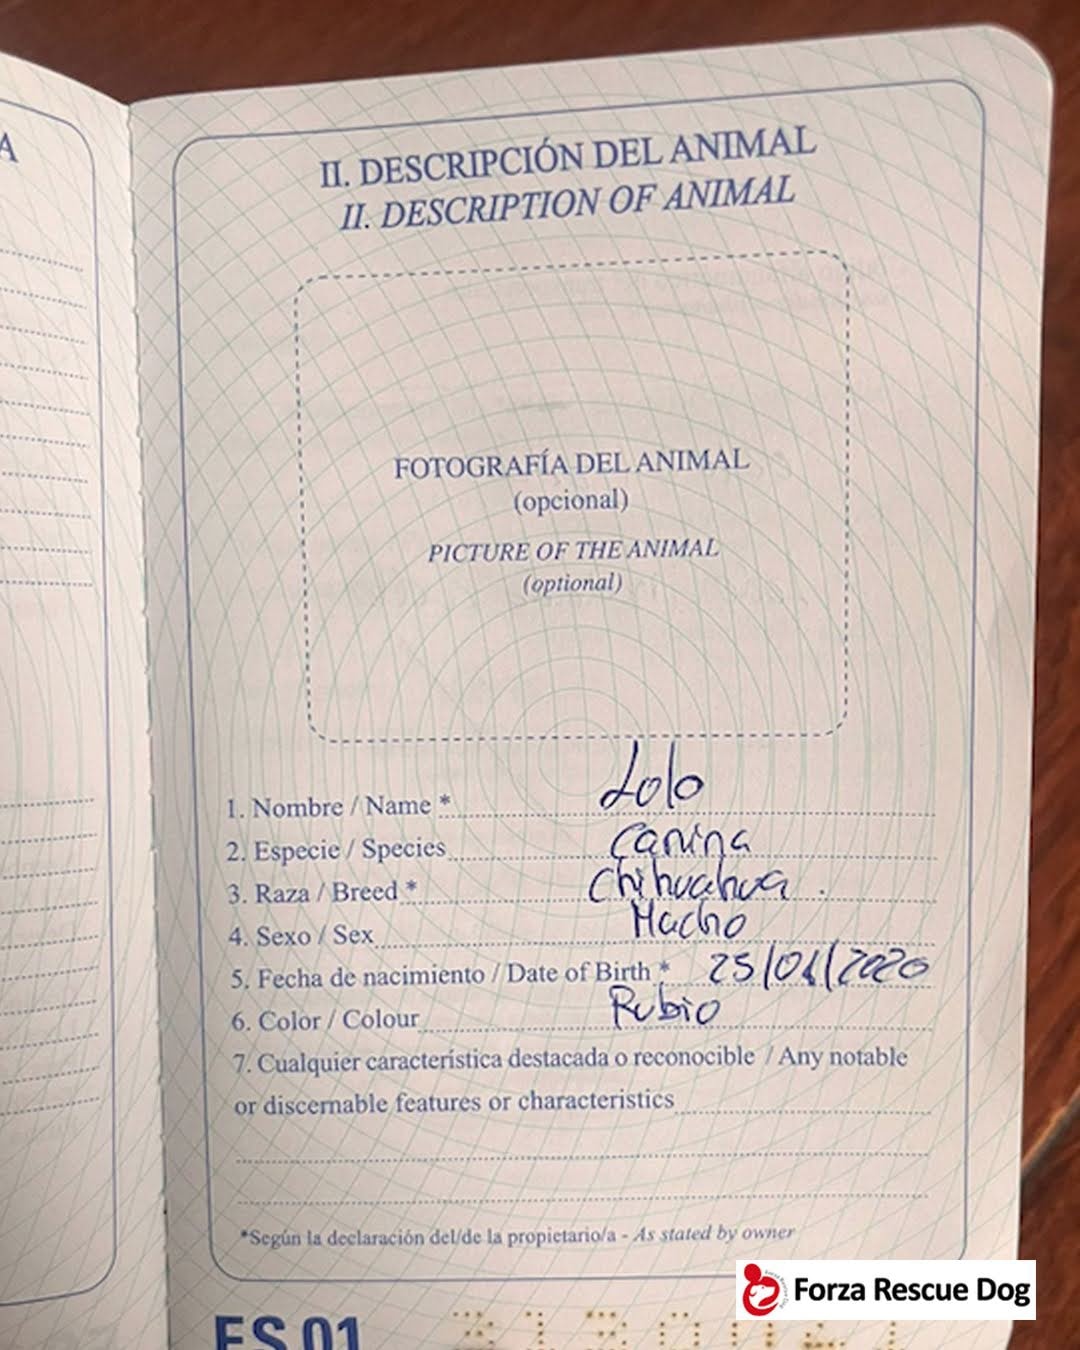 A
II. DESCRIPCIÓN DEL ANIMAL
II. DESCRIPTION OF ANIMAL
FOTOGRAFÍA DEL ANIMAL
(opcional)
PICTURE OF THE ANIMAL
(optional)
1. Nombre / Name * Lolo
2. Especie / Species Canina
3. Raza / Breed * Chihuahua.
4. Sexo / Sex Macho
5. Fecha de nacimiento / Date of Birth * 25/01/2020
6. Color / Colour Rubio
7. Cualquier característica destacada o reconocible / Any notable
or discernable features or characteristics
*Según la declaración del/de la propietario/a - As stated by owner
Forza Rescue Dog
ES 01